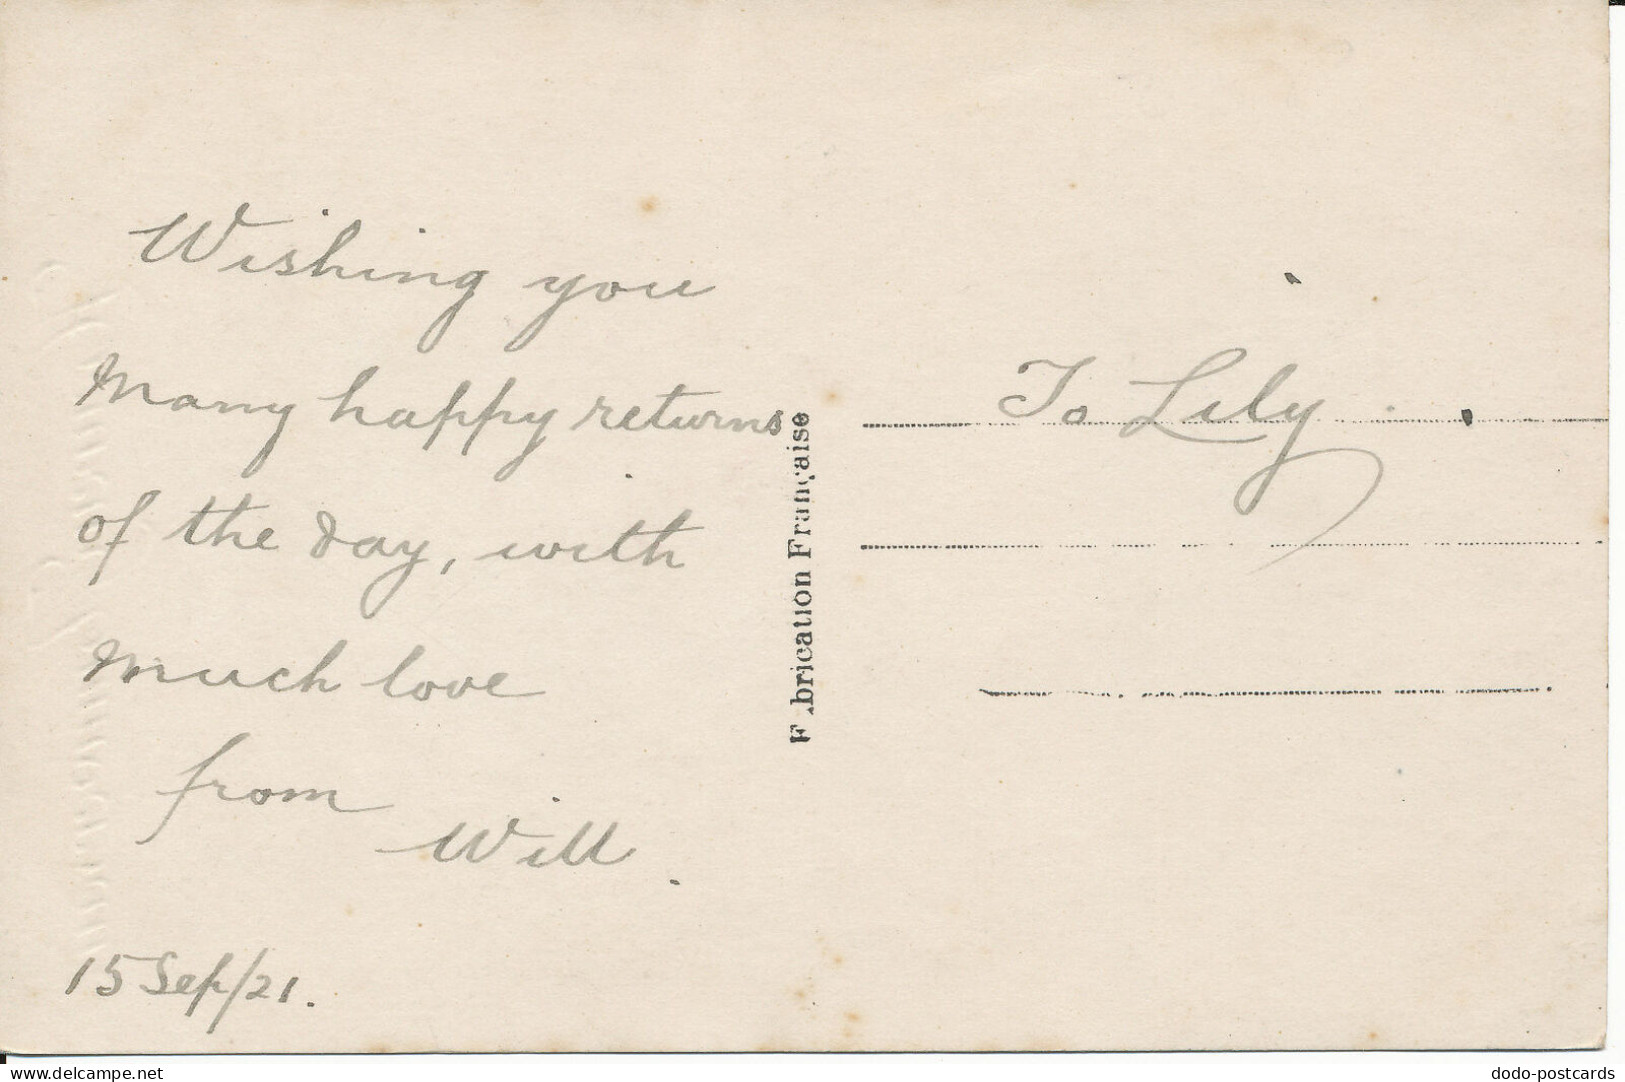 Wishing you
Many happy returns
of the Day, with
Much love
from
Will.
15 Sep/21.
Fabrication Française
To Lily.
www.delcampe.net
dodo-postcards